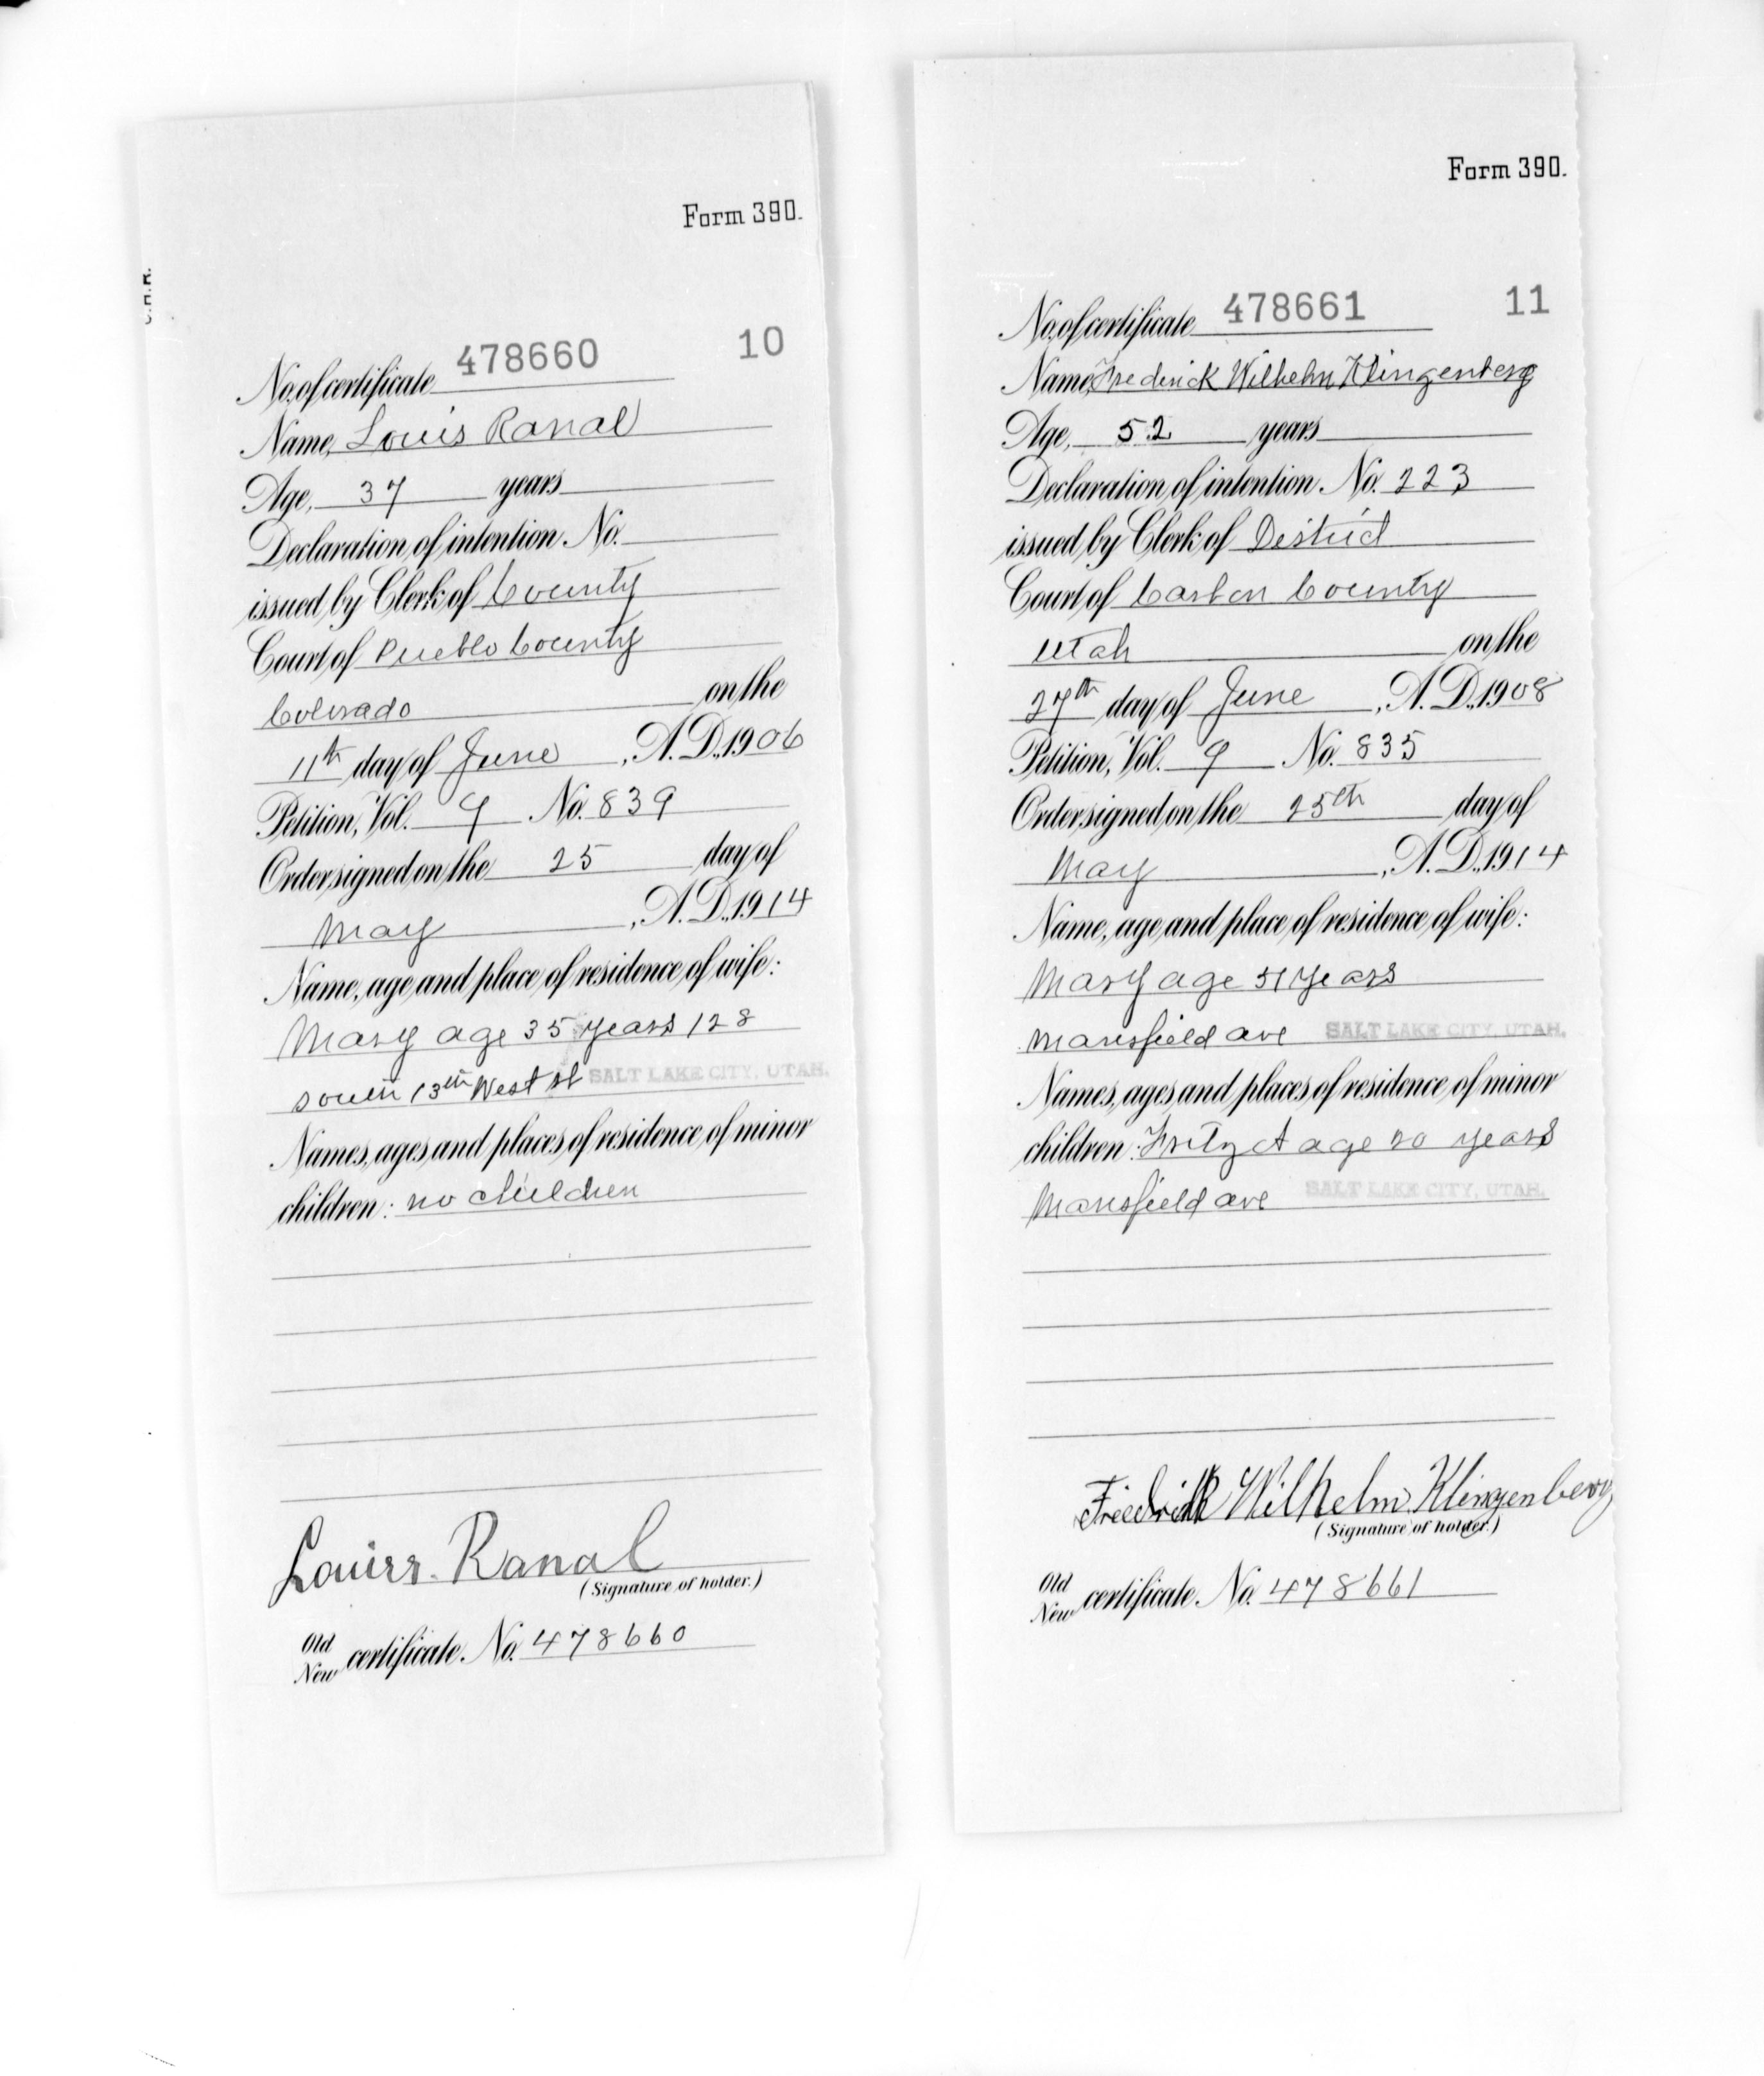 Form 390.
C.H.R.
No. of certificate 478660 10
Name, Louis Ranal
Age, 37 years
Declaration of intention No.
issued by Clerk of County
Court of Pueblo County
Colorado on the
11th day of June, A.D. 1906
Petition, Vol. 9 No. 839
Order signed on the 25 day of
May, A.D. 1914
Name, age and place of residence of wife:
Mary age 35 years 128
south 13th West st SALT LAKE CITY, UTAH.
Names, ages and places of residence of minor
children: no children
Louiss. Ranal
(Signature of holder.)
Old
New certificate No. 478660
Form 390.
No. of certificate 478661 11
Name, Frederick Wilhelm Klingenberg
Age, 52 years
Declaration of intention No. 223
issued by Clerk of District
Court of Carbon County
Utah on the
27th day of June, A.D. 1908
Petition, Vol. 9 No. 835
Order signed on the 25th day of
May, A.D. 1914
Name, age and place of residence of wife:
Mary age 51 years
Mansfield ave SALT LAKE CITY, UTAH.
Names, ages and places of residence of minor
children: Fritz A age 20 years
Mansfield ave SALT LAKE CITY, UTAH.
Friedrich Wilhelm Klingenberg
(Signature of holder.)
Old
New certificate No. 478661